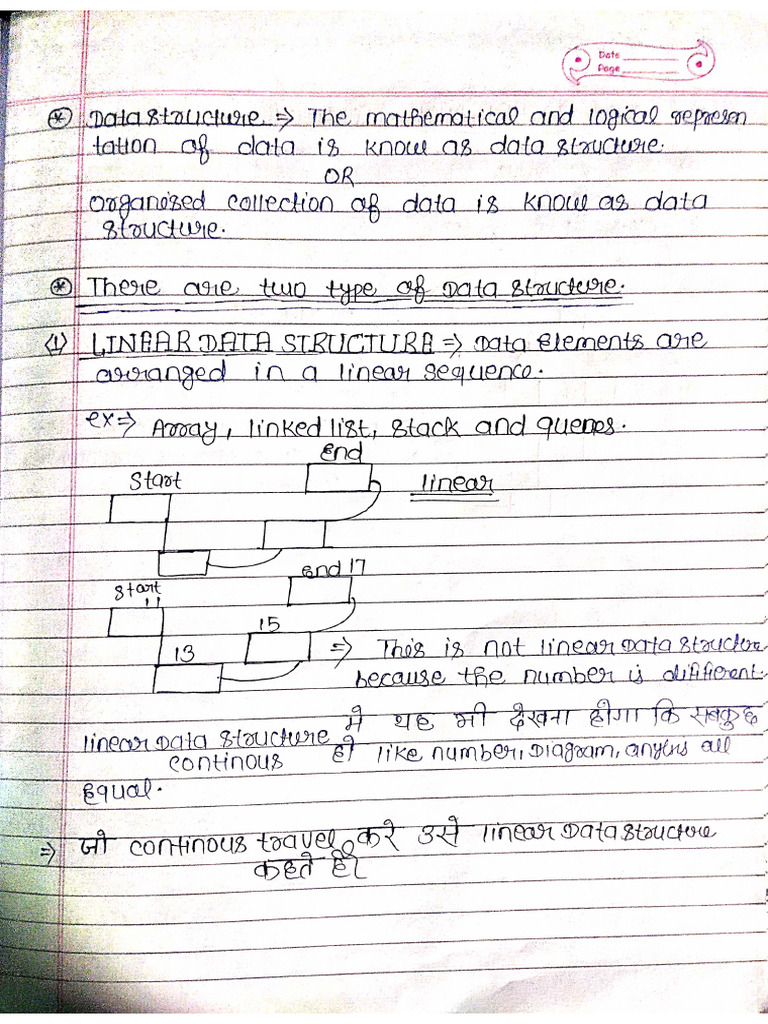 Date
Page
* Data structure ⇒ The mathematical and logical represen
tation of data is know as data structure.
OR
organised collection of data is know as data
structure.
* There are two type of Data structure.
(1) LINEAR DATA STRUCTURE ⇒ Data Elements are
arranged in a linear sequence.
ex ⇒ Array, linked list, stack and
End
Start
linear
End 17
start
11
15
13
⇒ This is not linear Data structure
because the number is different.
linear Data structure में यह भी देखना होगा कि सबकुछ
continous हो like number, Diagram, all
Equal.
⇒ जो continous travel करे उसे linear Data structure
कहते है।